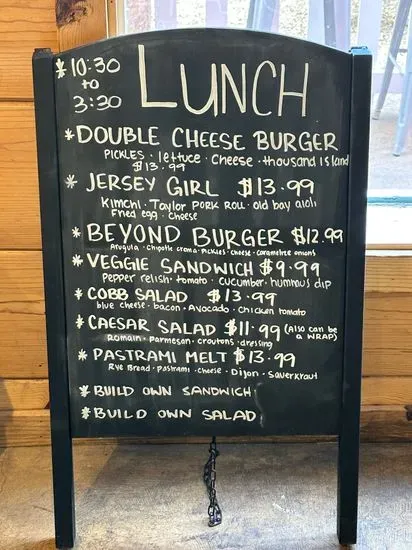 * 10:30 LUNCH
to
3:30
* DOUBLE CHEESE BURGER
PICKLES · lettuce · Cheese · thousand island
$13.99
* JERSEY GIRL $13.99
Kimchi · Taylor PORK ROLL · old bay aioli
Fried egg · Cheese
* BEYOND BURGER $12.99
Arugula · Chipotle crema · pickles · cheese · caramelize onions
* VEGGIE SANDWICH $9.99
Pepper relish · tomato · cucumber · hummus dip
* COBB SALAD $13.99
blue cheese · bacon · Avocado · chicken tomato
* CAESAR SALAD $11.99 (Also can be
a WRAP)
Romain · Parmesan · croutons · dressing
* PASTRAMI MELT $13.99
Rye Bread · pastrami · cheese · Dijon · Sauerkraut
* BUILD OWN SANDWICH
* BUILD OWN SALAD